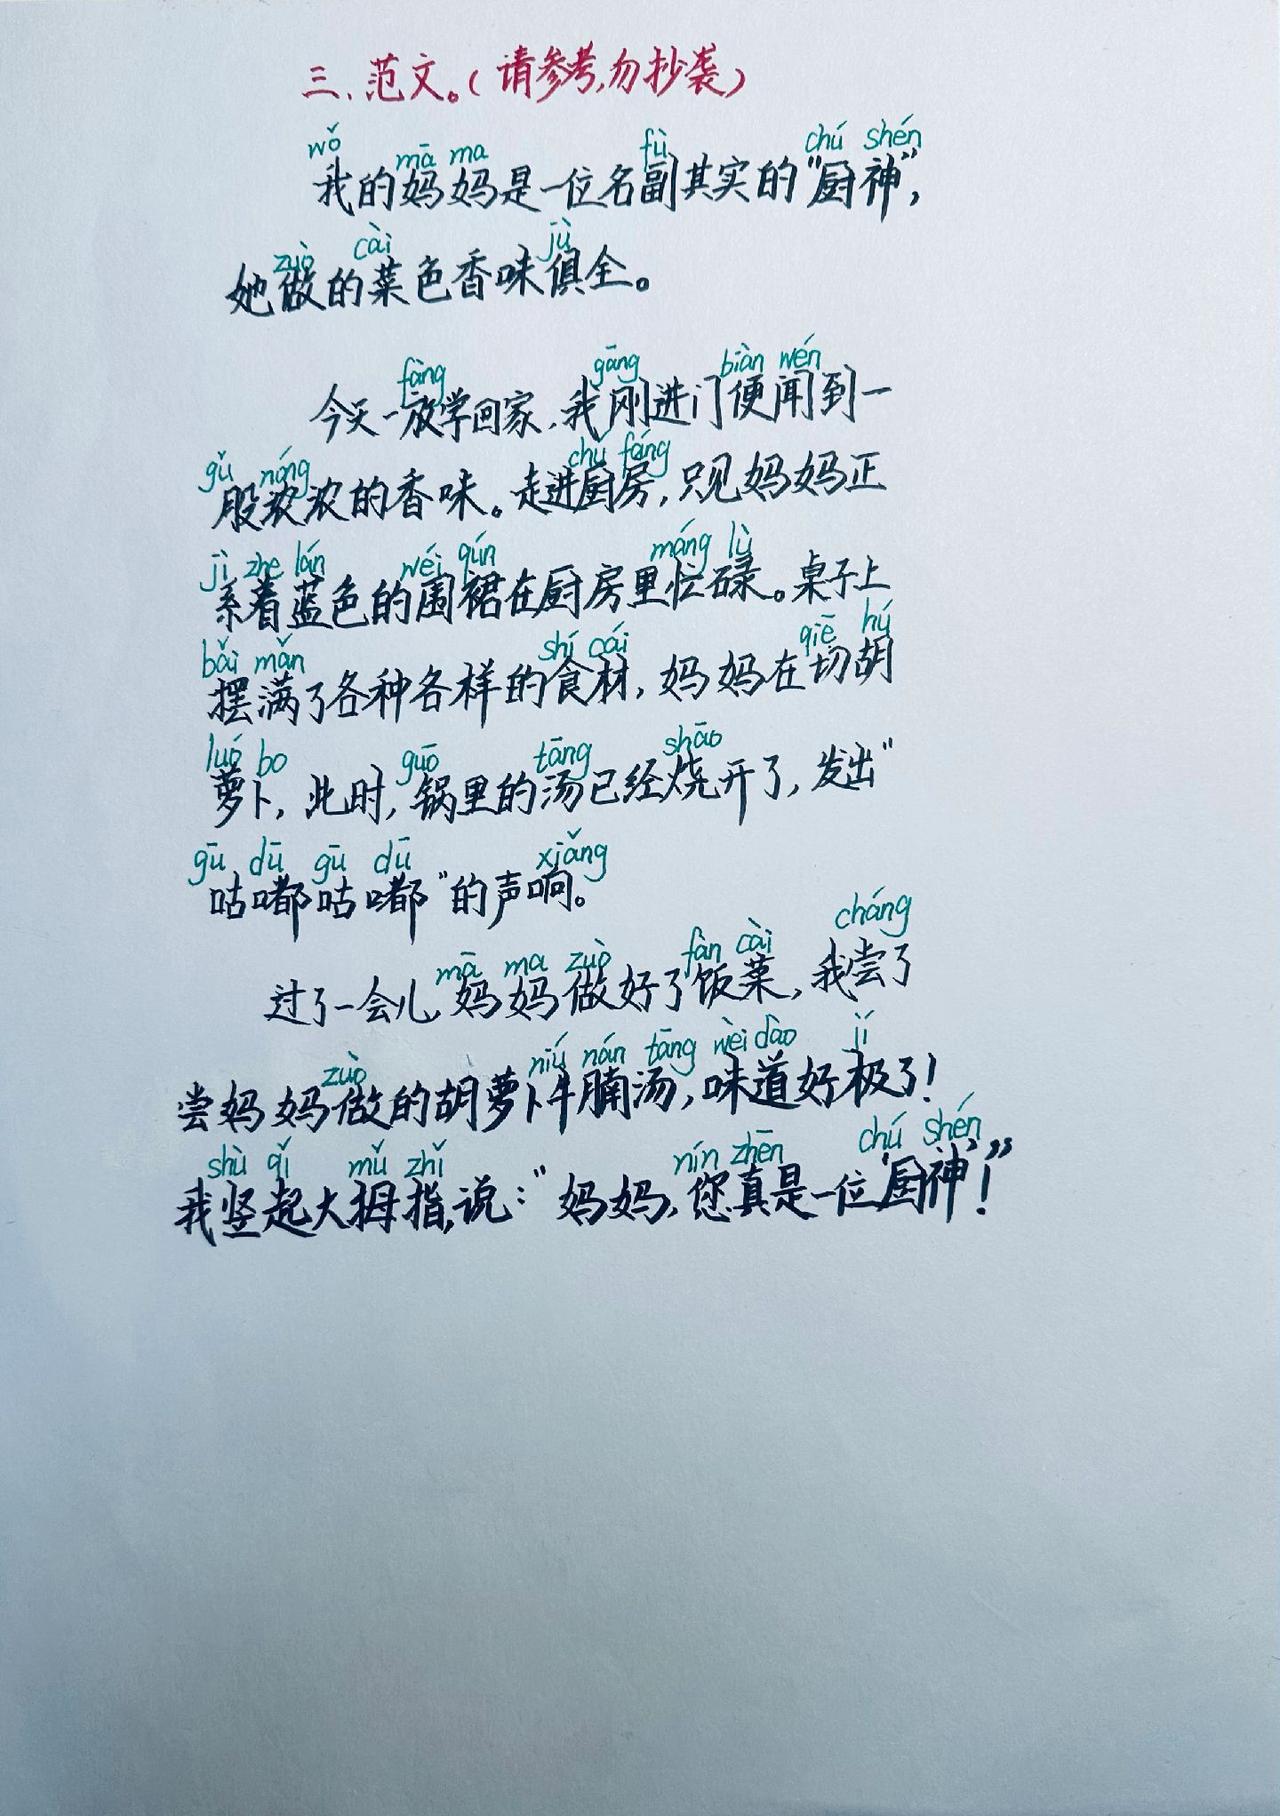 三、范文。(请参考,勿抄袭)
wǒ mā ma fù chú shén
我的妈妈是一位名副其实的“厨神”,
zuò cài jù
她做的菜色香味俱全。
fàng gāng biàn wén
今天一放学回家,我刚进门便闻到一
gǔ nóng chú fáng
股浓浓的香味。走进厨房,只见妈妈正
jì zhe lán wéi qún máng lù
系着蓝色的围裙在厨房里忙碌。桌子上
bǎi mǎn shí cái qiē hú
摆满了各种各样的食材,妈妈在切胡
luó bo guō tāng shāo
萝卜,此时,锅里的汤已经烧开了,发出“
gū dū gū dū xiǎng
咕嘟咕嘟”的声响。
mā ma zuò fàn cài cháng
过了一会儿,妈妈做好了饭菜,我尝了
zuò niú nán tāng wèi dào jí
尝妈妈做的胡萝卜牛腩汤,味道好极了!
shù qǐ mǔ zhǐ nín zhēn chú shén
我竖起大拇指,说:“妈妈,您真是一位‘厨神’!”